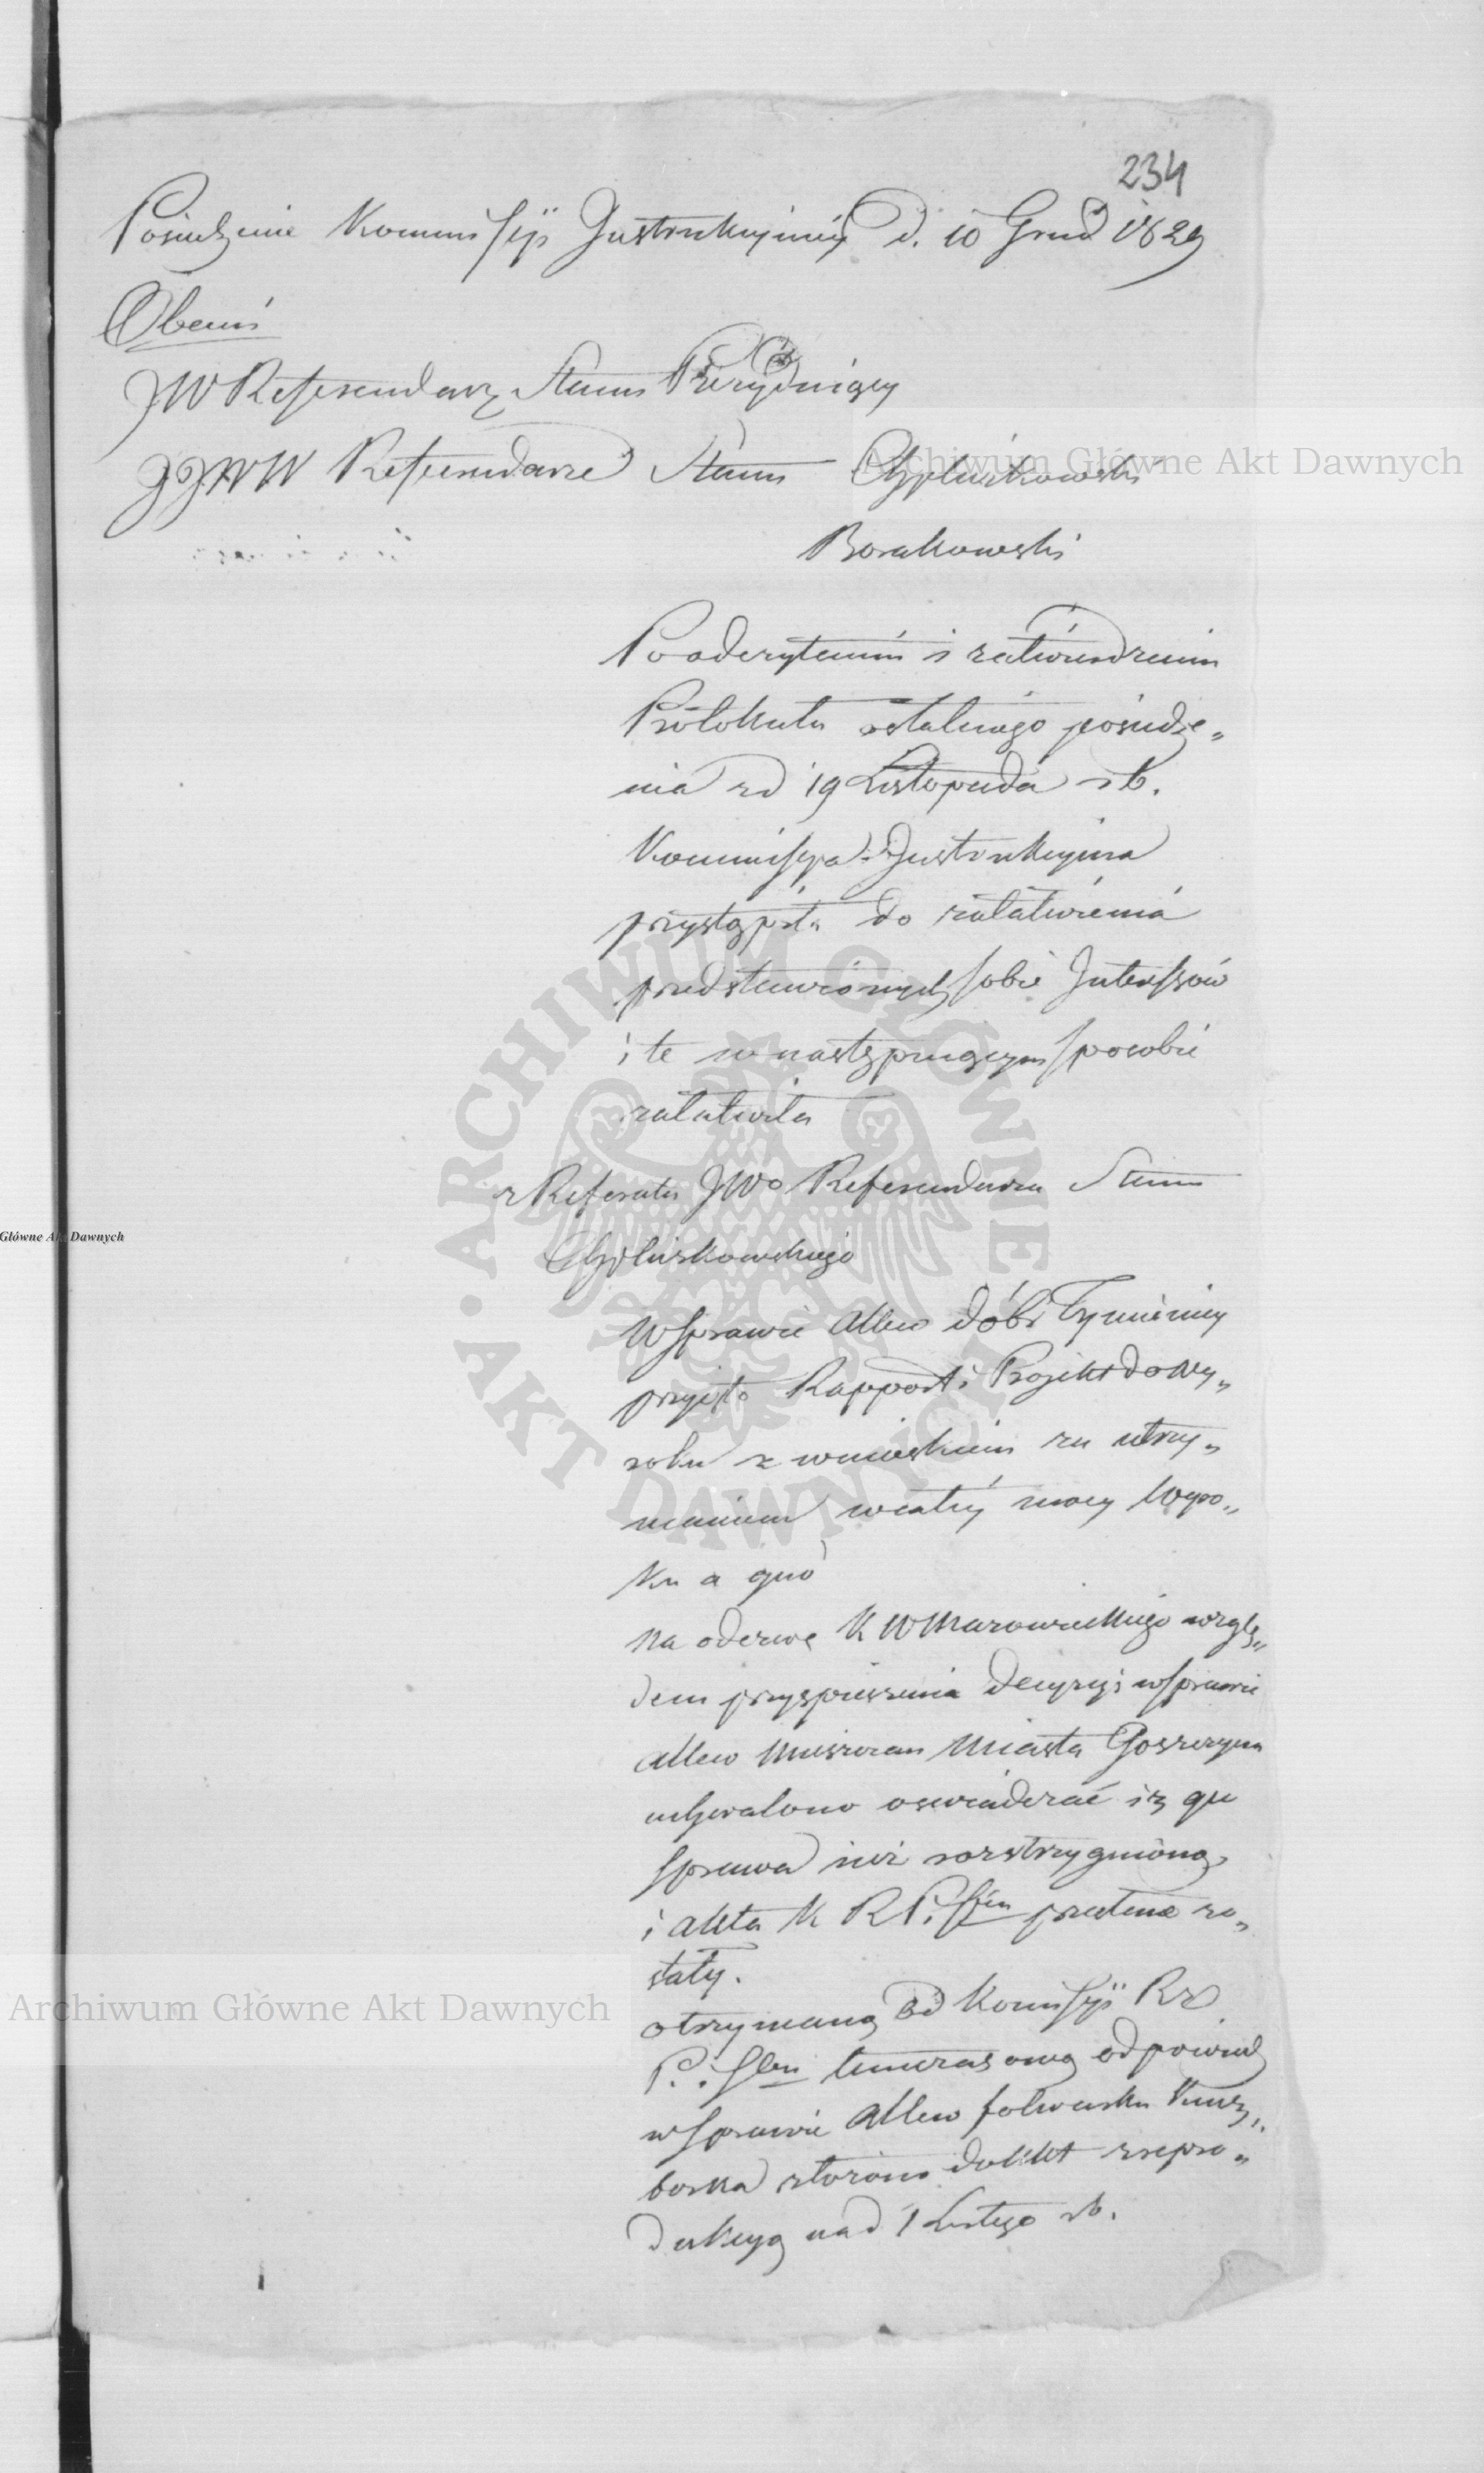 234
Posiedzenie Kommissyi Instrukcyiney d. 10 Grud 1829
Obecni
JW Referendarz Stanu Prezyduiący
JJWW Referendarze Stanu
Borakowski
Po odczytaniu i zatwierdzeniu
Protokułu ostatniego posiedze„
nia z d 19 Listopada r b.
Kommissya Instrukcyina
przystąpiła do załatwienia
przedstawionych sobie Interessów
i te w następuiącym sposobie
załatwiła
z Referatu JWo Referendarza Stanu
W sprawie dóbr Tymienicy
przyięto Rapport i Projekt do Wy„
roku z wnioskiem za utrzy„
maniem w całey mocy Wyro„
ku a quo
Na odezwę K W Mazowieckiego wzglę„
dem przyspieszenia decyzyi w sprawie
Mieszczan Miasta Goszczyna
uchwalono oswiadczać iż
sprawa iuż rozstrzygnioną
i akta K R P. i Sbu przesłane zo„
stały.
otrzymaną od Komissyi Rz
P. i Sbu tymczasową odpowiedź
w sprawie folwarku
złożono do akt z repro„
dukcyą na d 1 Lutego r b.
Archiwum Główne Akt Dawnych
Archiwum Główne Akt Dawnych
Główne Akt Dawnych
ARCHIWUM GŁÓWNE • AKT DAWNYCH